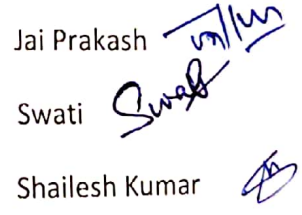 Jai Prakash
Swati Swati
Shailesh Kumar